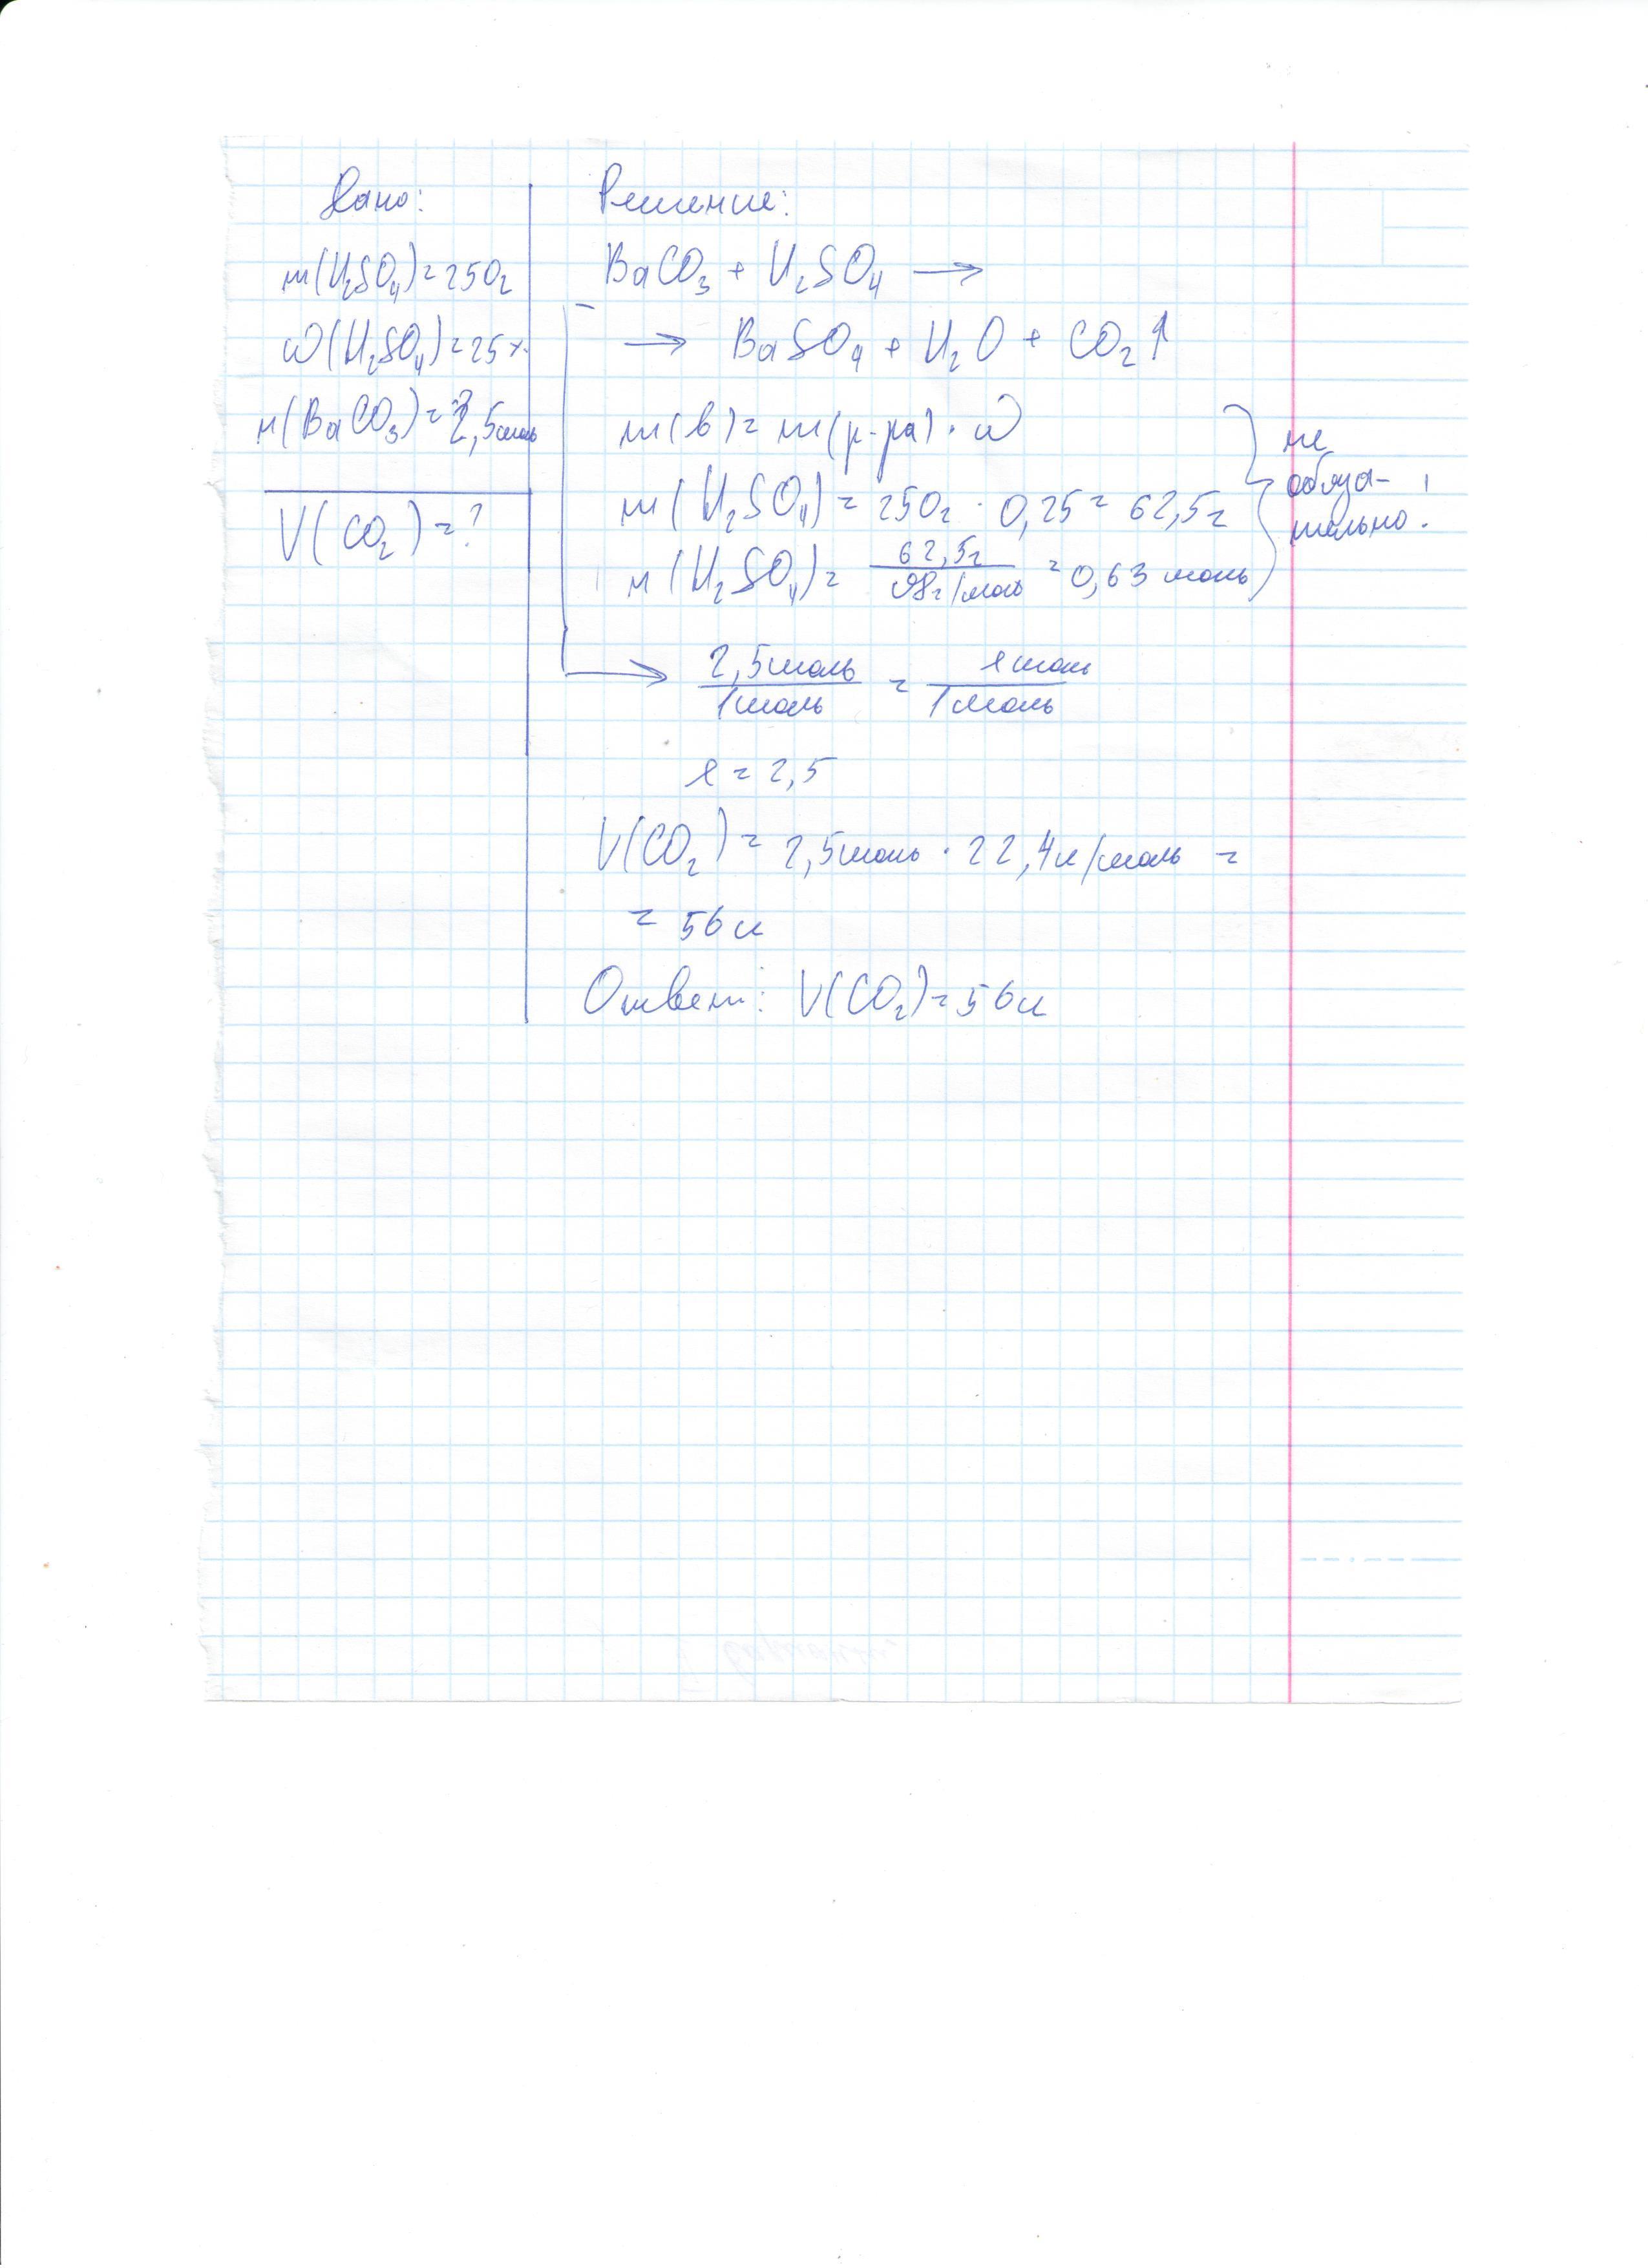 Дано:
m(H₂SO₄)=250г
ω(H₂SO₄)=25%
n(BaCO₃)=2,5моль
V(CO₂)=?
Решение:
BaCO₃ + H₂SO₄ →
→ BaSO₄ + H₂O + CO₂↑
m(в)=m(р-ра)·ω
m(H₂SO₄)=250г · 0,25=62,5г
n(H₂SO₄)= 62,5г/98г/моль =0,63 моль
не
обяза-
тельно.
2,5моль/1моль = xмоль/1моль
x=2,5
V(CO₂)= 2,5моль · 22,4л/моль =
= 56л
Ответ: V(CO₂)=56л